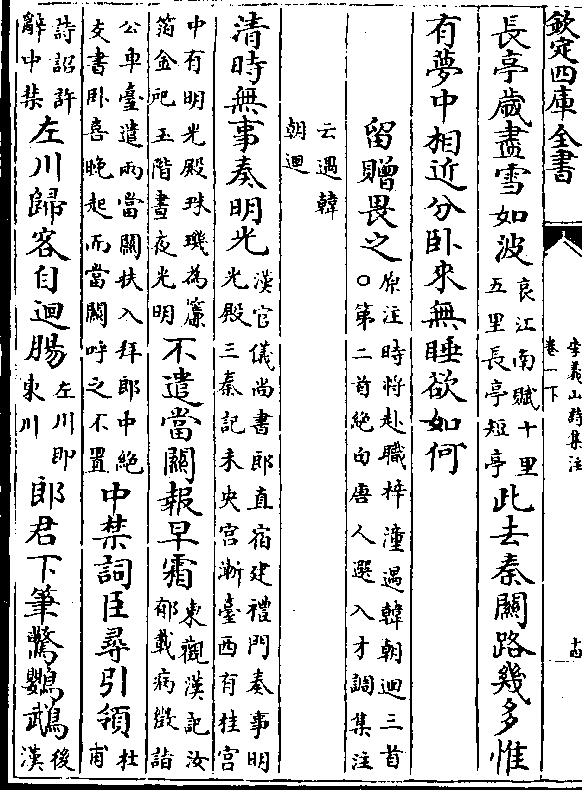 欽定四庫全書
李義山詩集注
卷一下
十四
長亭歲盡雪如波哀江南賦十里五里長亭短亭此去秦關路幾多惟
有夢中相近分卧來無睡欲如何
留贈畏之原注時將赴職梓潼遇韓朝迴三首○第二首絶句唐人選入才調集注
云遇韓朝迴
清時無事奏明光漢官儀尚書郎直宿建禮門奏事明光殿三秦記未央宫漸臺西有桂宫
中有明光殿珠璣為簾箔金戺玉階晝夜光明不遣當關報早霜東觀漢記汝郁載病徵詣
公車臺遣兩當關扶入拜郎中絶交書卧喜晚起而當關呼之不置中禁詞臣尋引領杜甫
詩詔許辭中禁左川歸客自迴腸左川即東川郎君下筆驚鸚鵡後漢